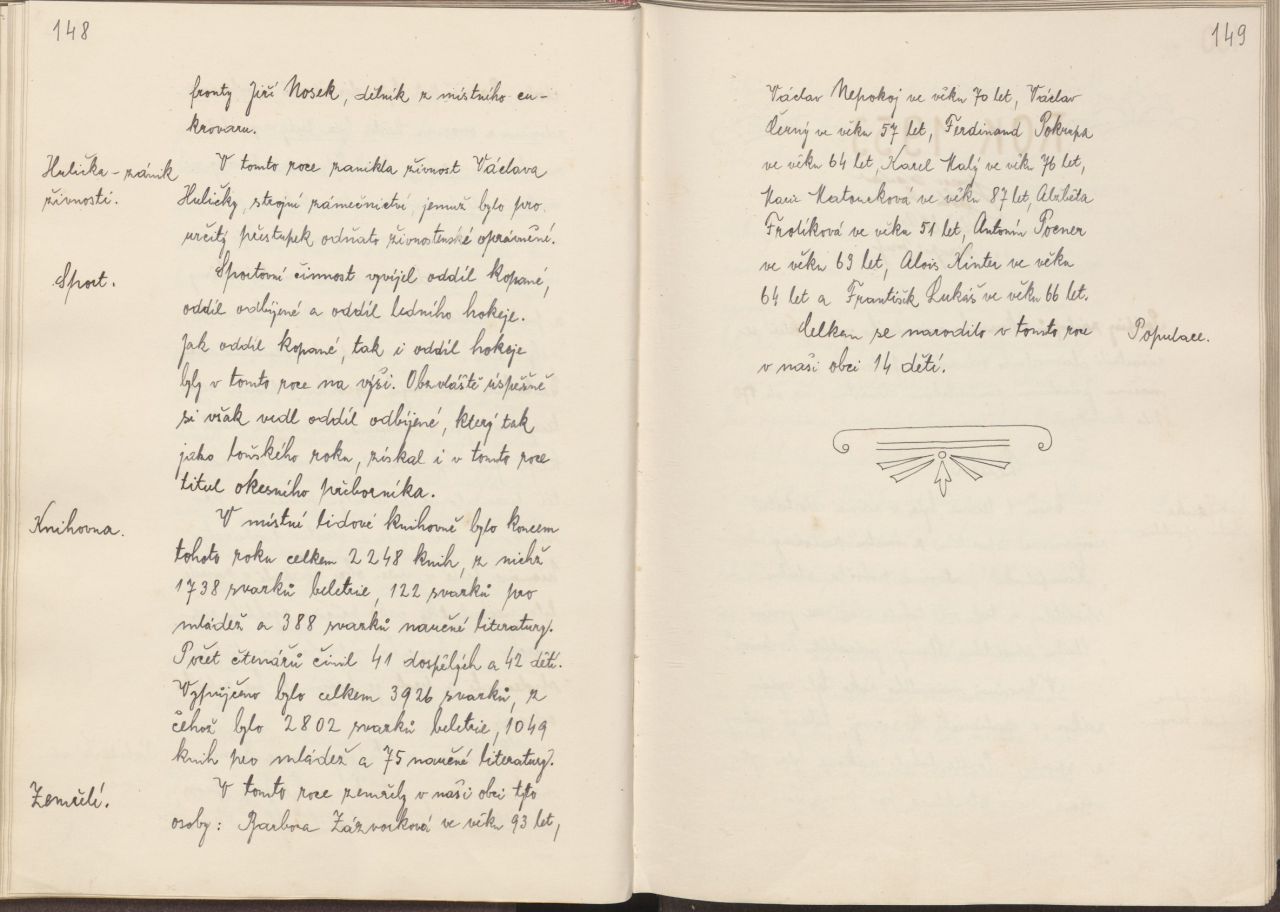 148
fronty Jiří Nosek, dělník z místního cu-
krovaru.
Hulička - zánik
živnosti.
V tomto roce zanikla živnost Václava
Huličky, strojní zámečnictví, jemuž bylo pro
určitý přestupek odňato živnostenské oprávnění.
Sport.
Sportovní činnost vyvíjel oddíl kopané,
oddíl odbíjené a oddíl ledního hokeje.
Jak oddíl kopané, tak i oddíl hokeje
byly v tomto roce na výši. Obzvláště úspěšně
si však vedl oddíl odbíjené, který tak
jako loňského roku, získal i v tomto roce
titul okresního přeborníka.
Knihovna.
V místní lidové knihovně bylo koncem
tohoto roku celkem 2248 knih, z nichž
1738 svazků beletrie, 122 svazků pro
mládež a 388 svazků naučné literatury.
Počet čtenářů činil 41 dospělých a 42 dětí.
Vypůjčeno bylo celkem 3926 svazků, z
čehož bylo 2802 svazků beletrie, 1049
knih pro mládež a 75 naučné literatury.
Zemřelí.
V tomto roce zemřely v naší obci tyto
osoby: Barbora Zázvorková ve věku 93 let,
149
Václav Nepokoj ve věku 70 let, Václav
Černý ve věku 57 let, Ferdinand Pokrupa
ve věku 64 let, Karel Malý ve věku 76 let,
Marie Matoušková ve věku 87 let, Alžběta
Frolíková ve věku 51 let, Antonín Pocner
ve věku 69 let, Alois Kinter ve věku
64 let a František Lukáš ve věku 66 let.
Populace.
Celkem se narodilo v tomto roce
v naší obci 14 dětí.